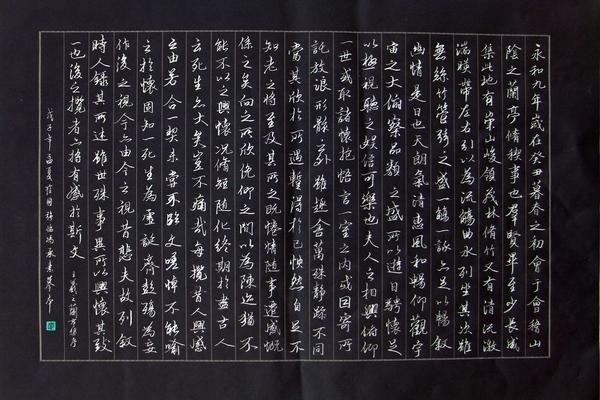 永和九年歲在癸丑暮春之初會于會稽山
陰之蘭亭脩禊事也羣賢畢至少長咸
集此地有崇山峻領茂林脩竹又有清流激
湍暎帶左右引以為流觴曲水列坐其次雖
無絲竹管弦之盛一觴一詠亦足以暢敘
幽情是日也天朗氣清惠風和暢仰觀宇
宙之大俯察品類之盛所以遊目騁懷足
以極視聽之娛信可樂也夫人之相與俯仰
一世或取諸懷抱悟言一室之內或因寄所
託放浪形骸之外雖趣舍萬殊靜躁不同
當其欣於所遇暫得於己怏然自足不
知老之將至及其所之既惓情隨事遷感慨
係之矣向之所欣俛仰之間以為陳迹猶不
能不以之興懷況脩短隨化終期於盡古人
云死生亦大矣豈不痛哉每攬昔人興感
之由若合一契未嘗不臨文嗟悼不能喻
之於懷固知一死生為虛誕齊彭殤為妄
作後之視今亦由今之視昔悲夫故列敘
時人錄其所述雖世殊事異所以興懷其致
一也後之攬者亦將有感於斯文 王羲之蘭亭序
戊子年孟夏 臨馮承素摹本